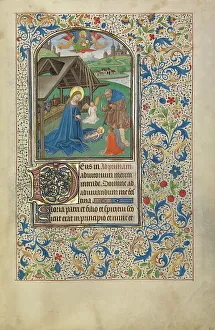 Deus in Ad primam
adiutorium meum
intende. Domine ad
adiuvandum me fes
tina
Gloria patri et filio et spiritui san
Sicut erat in principio et nunc et